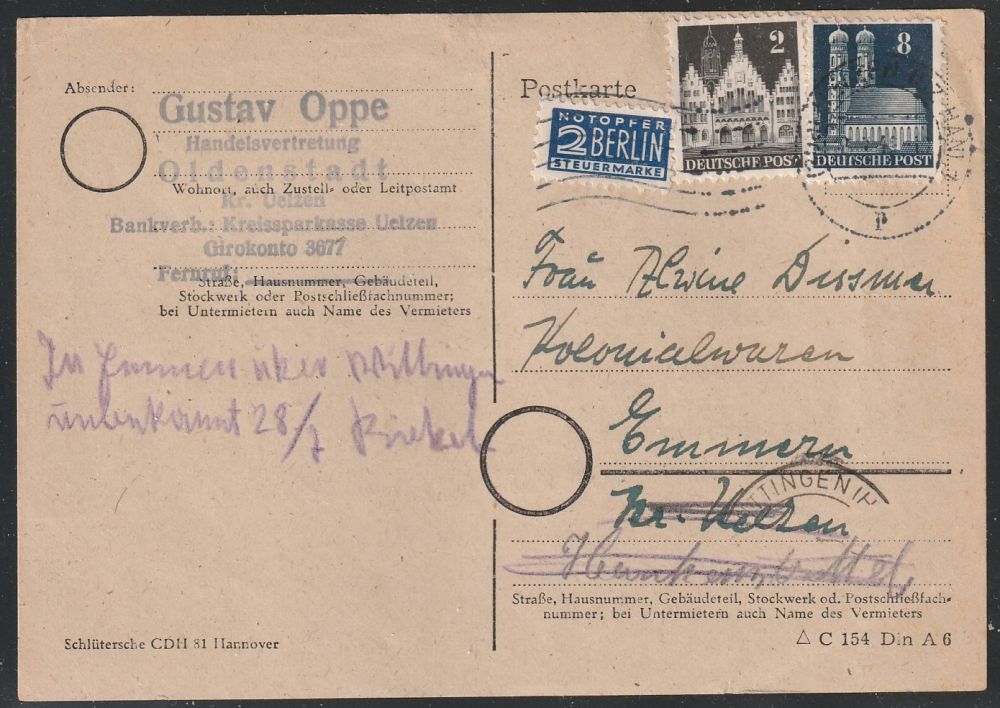 Absender:
Gustav Oppe
Handelsvertretung
Oldenstadt
Wohnort, auch Zustell- oder Leitpostamt
Kr. Uelzen
Bankverb.: Kreissparkasse Uelzen
Girokonto 3677
Fernruf:
Straße, Hausnummer, Gebäudeteil,
Stockwerk oder Postschließfachnummer;
bei Untermietern auch Name des Vermieters
In Emmen über Wittingen
unbekannt 28/7
Schlütersche CDH 81 Hannover
Postkarte
NOTOPFER
2 BERLIN
STEUERMARKE
2
DEUTSCHE POST
8
DEUTSCHE POST
P
Frau Alwine Dissmer
Kolonialwaren
Emmern
Kr. Uelzen
TTINGEN
Straße, Hausnummer, Gebäudeteil, Stockwerk od. Postschließfach-
nummer; bei Untermietern auch Name des Vermieters
△ C 154 Din A 6